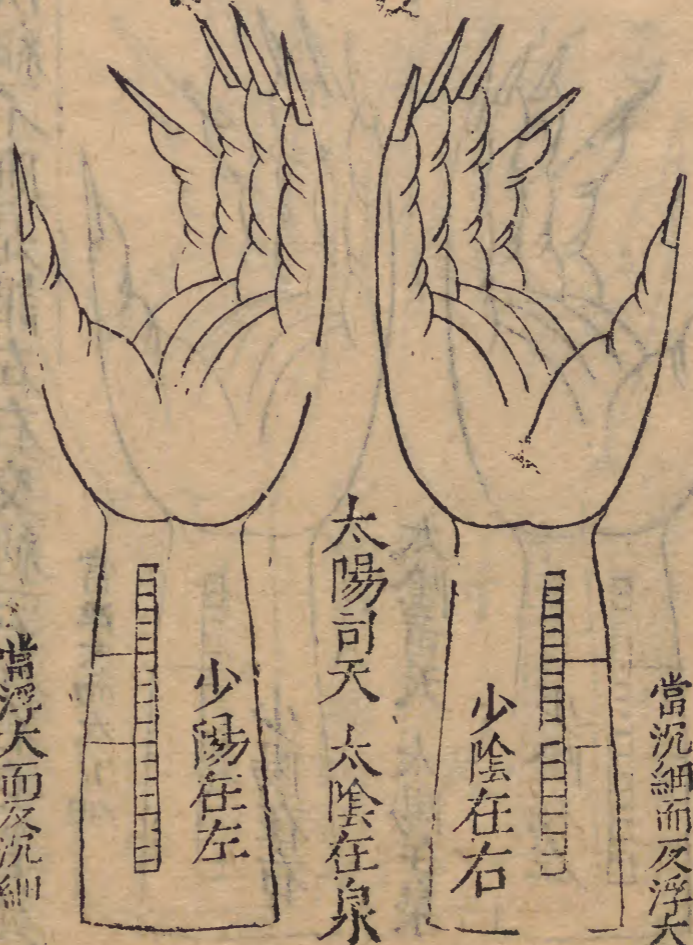 當沉細而反浮大
少陰在右
太陽司天 太陰在泉
少陽在左
當浮大而反沉細